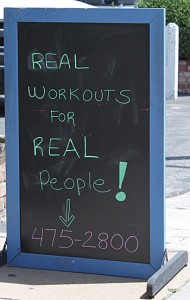 REAL
WORKOUTS
FOR
REAL
People!
475-2800